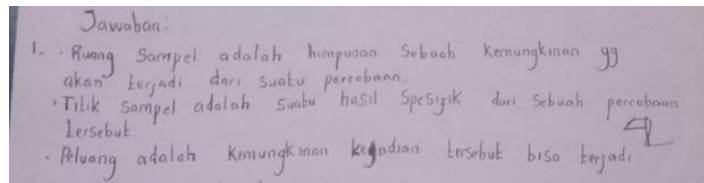 Jawaban:
1. • Ruang Sampel adalah himpunan Sebuah Kemungkinan yg
akan terjadi dari suatu percobaan.
• Titik Sampel adalah suatu hasil Spesifik dari Sebuah percobaan
tersebut.
• Peluang adalah Kemungkinan kejadian tersebut bisa terjadi